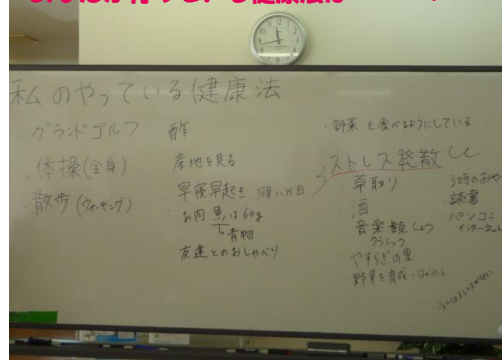 私のやっている健康法
・グランドゴルフ
・体操(全身)
・散歩(ウォーキング)
酢
産地を見る
・早寝早起き 腹八分目
・お肉 魚は60g
青物
・友達とのおしゃべり
・野菜を食べるようにしている
ストレス発散
・草取り
・酒
・音楽観しょう
クラシック
やすらぎの里
野菜を育成
3時のおや
・読書
・パソコン
インターネット